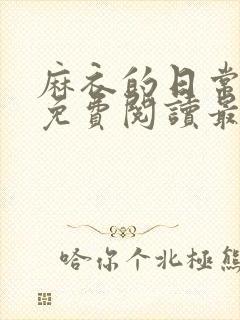 麻衣的日常
免費閱讀最
哈你个北極熊